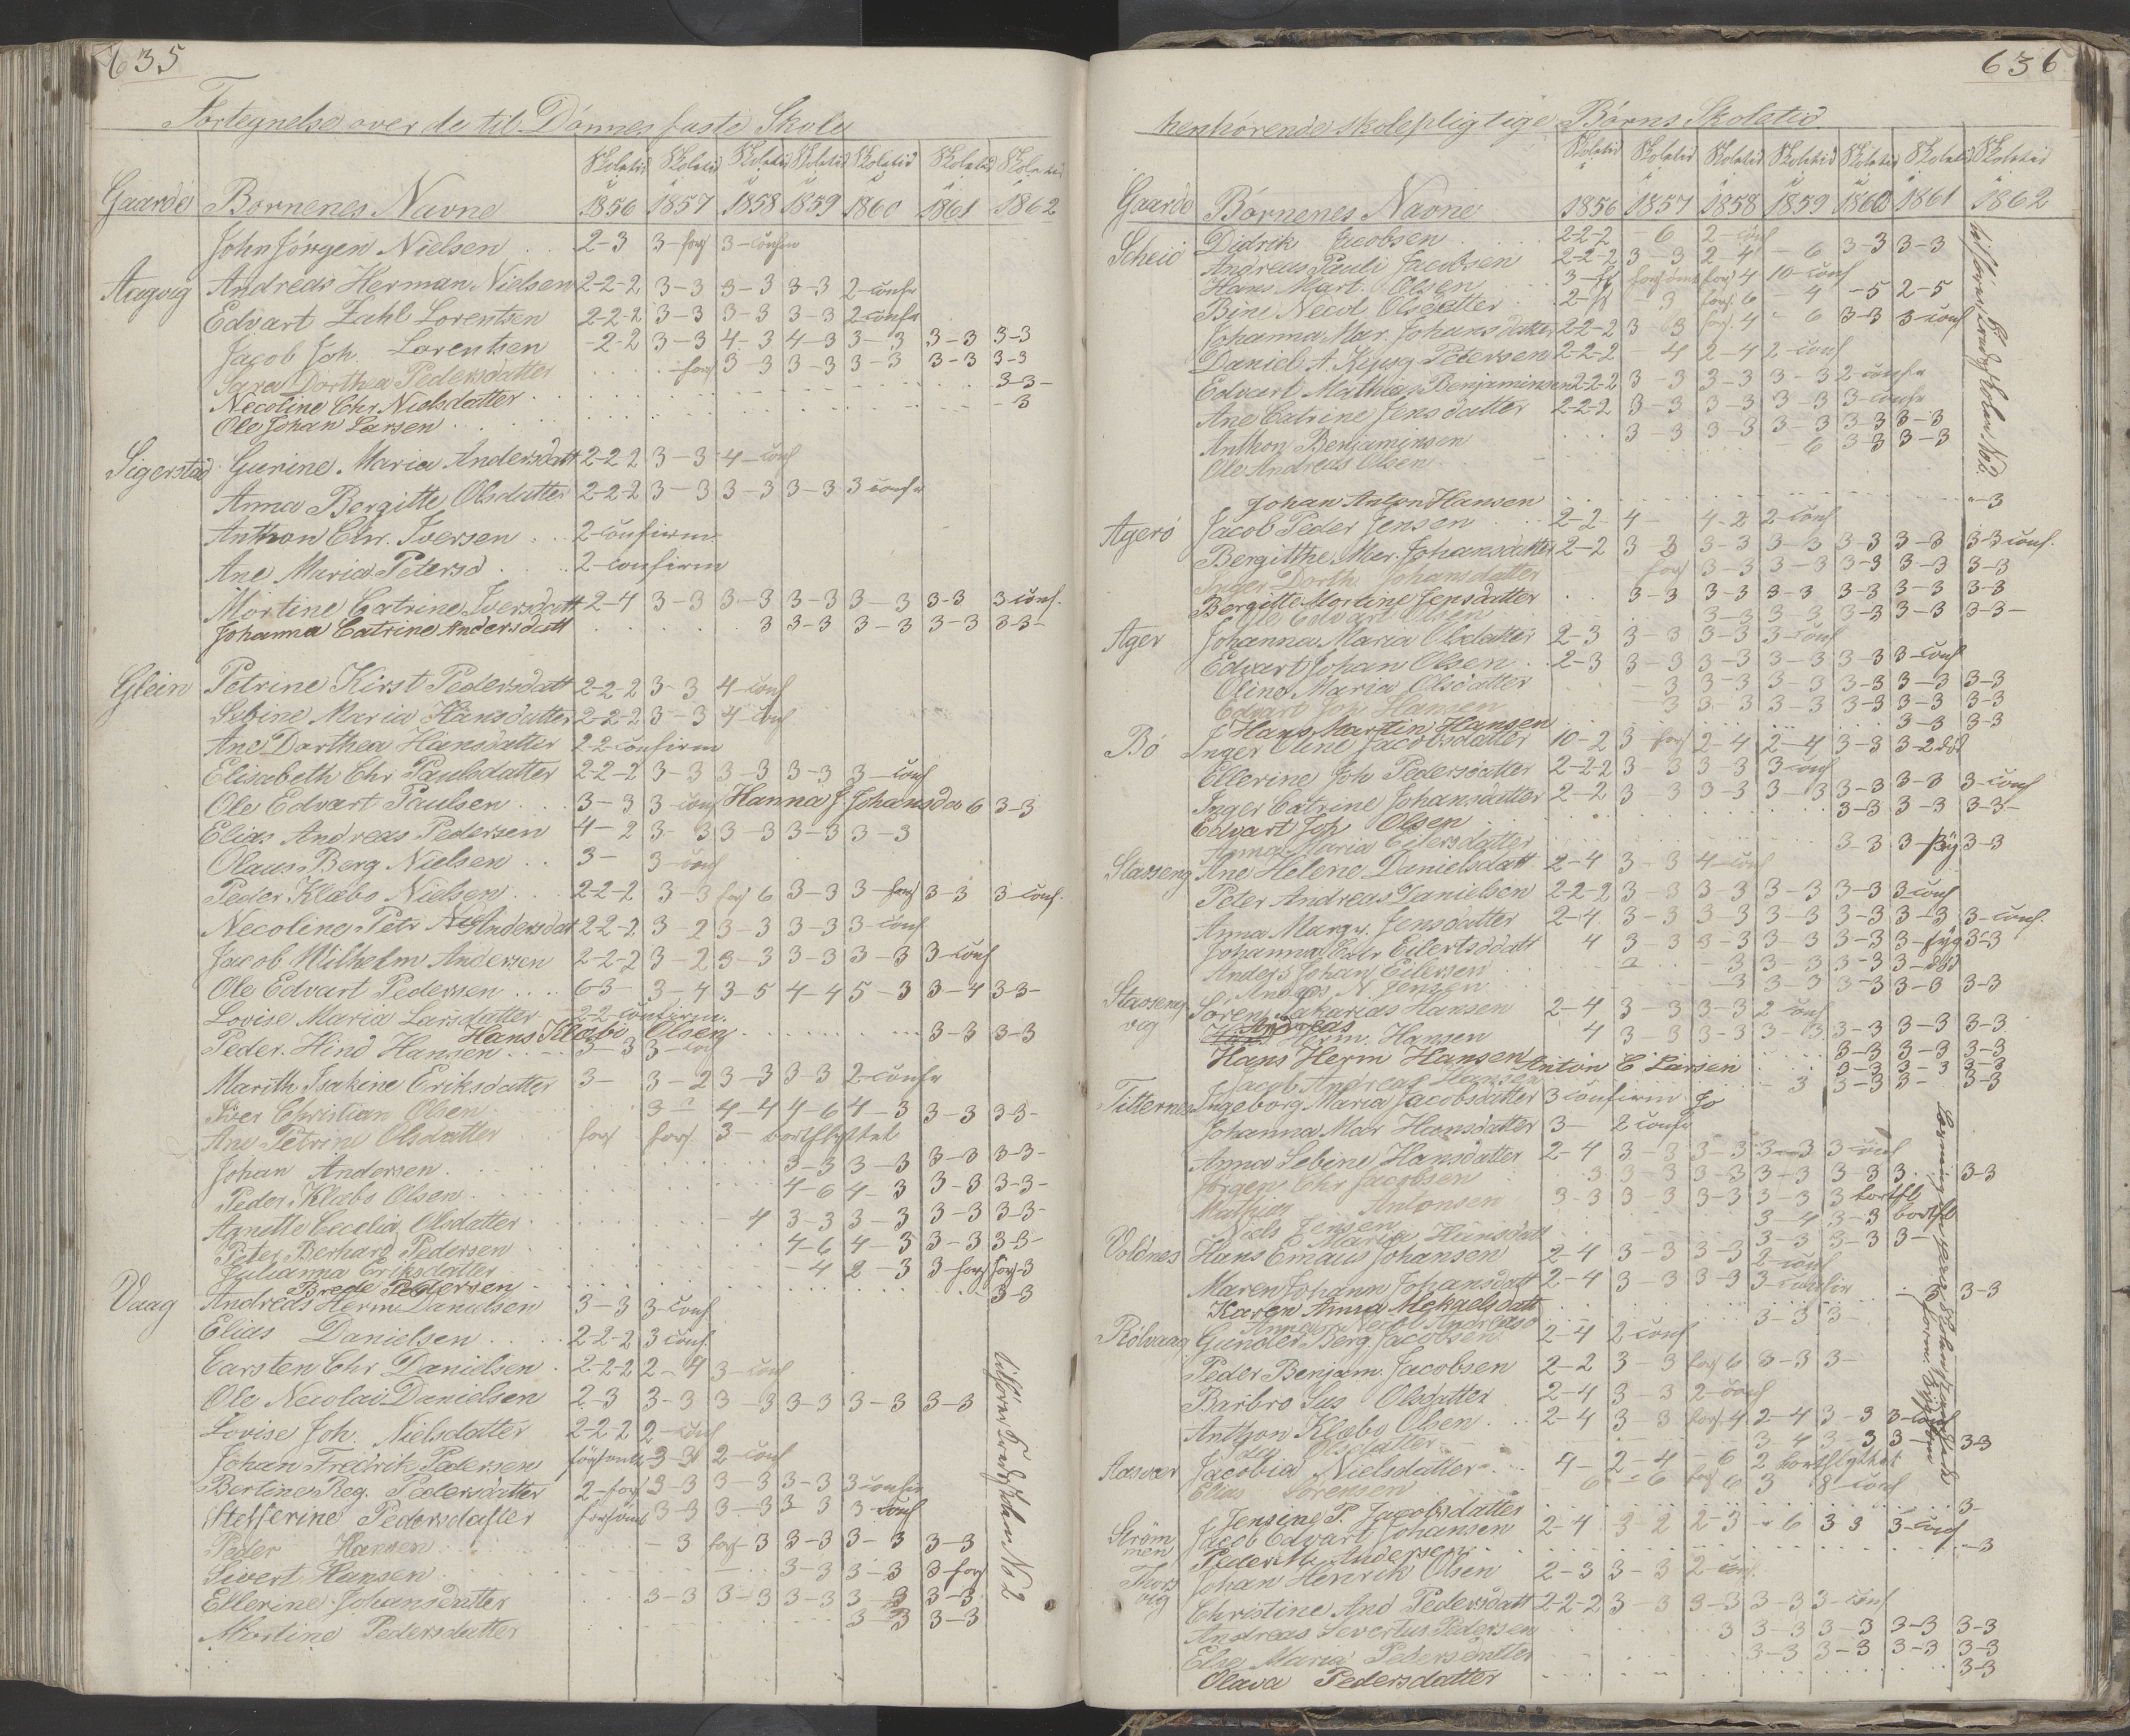 635
Fortegnelse over de til Dönnes faste Skole
Skoletid Skoletid Skoletid Skoletid Skoletid Skoletid Skoletid
Gaarde Börnenes Navne i 1856 i 1857 i 1858 i 1859 i 1860 i 1861 i 1862
John Jörgen Nielsen 2-3 3-fors 3-confirm
Aagvig Andreas Herman Nielsen 2-2-2 3-3 3-3 3-3 2-confir
Edvart Zahl Lorentsen 2-2-2 3-3 3-3 3-3 2-confir
Jacob Joh. Lorentsen -2-2 3-3 4-3 4-3 3-3 3-3 3-3
Sara Dorthea Pedersdatter -fors 3-3 3-3 3-3 3-3 3-3
Necoline Chr Nielsdatter 3-3-
Ole Johan Larsen -3
Sigerstad Gurine Maria Andersdatt 2-2-2 3-3 4-conf
Anna Bergitte Olsdatter 2-2-2 3-3 3-3 3-3 3 confir
Anthon Chr. Iversen 2-confirm
Ane Maria Petersd 2-confirm
Mortine Catrine Iversdatt 2-4 3-3 3-3 3-3 3-3 3-3 3 conf.
Johanna Catrine Andersdatt 3 3-3 3-3 3-3 3-3-
Glein Petrine Kirst Pedersdatt 2-2-2 3-3 4-conf
Sebine Maria Hansdatter 2-2-2 3-3 4-conf
Ane Dorthea Hansdatter 2-2-confirm
Elisabeth Chr Paulsdatter 2-2-2 3-3 3-3 3-3 3-conf
Ole Edvart Paulsen 3-3 3-conf Hanna J Johansda 6 3-3
Elias Andreas Pedersen 4-2 3-3 3-3 3-3 3-3
Olaus Berg Nielsen 3- 3-conf
Peder Klæbo Nielsen 2-2-2 3-3 fors 6 3-3 3-fors 3-3 3-conf.
Necoline Petr Andersdat 2-2-2 3-2 3-3 3-3 3-conf
Jacob Wilhelm Andersen 2-2-2 3-2 3-3 3-3 3-3 3-conf
Ole Edvart Pedersen 6-3- 3-4 3-5 4-4 5-3 3-4 3-3-
Lovise Maria Larsdatter 2-2-confirm.
Hans Klæbo Olsen 3-3 3-3
Peder Hind Hansen 3-3 3-conf
Marith Isakine Eriksdatter 3- 3-2 3-3 3-3 2-confir
Iver Christian Olsen 3- 4-4 4-6 4-3 3-3 3-3-
Ane Petrine Olsdatter fors fors 3- bortflyttet
Johan Andersen 3-3 3-3 3-3 3-3-
Peder Klæbo Olsen 4-6 4-3 3-3 3-3-
Agnette Cecelia Olsdatter -4 3-3 3-3 3-3 3-3-
Peter Berhard Pedersen 4-6 4-3 3-3 3-3-
Julianna Eriksdatter -4 2-3 3-fors fors-3
Brede Pedersen 3-3
Vaag Andreas Herm Danielsen 3-3 3-conf
Elias Danielsen 2-2-2 3 conf.
Carsten Chr Danielsen 2-2-2 2-4 3-conf
Ole Necolai Danielsen 2-3 3-3 3-3 3-3 3-3 3-3
Lovise Joh. Nielsdatter 2-2-2 2-conf
Johan Fredrik Pedersen forsömt 3-3 2-conf
Berline Reg. Pedersdatter 2-fors 3-3 3-3 3-3 3 confir
Stefferine Pedersdatter forsömt 3-3 3-3 3-3 3-conf
Peder Hansen -3 fors-3 3-3 3-3 3-3
Sivert Hansen 3-3 3-3 3-fors
Ellerine Johansdatter 3-3 3-3 3-3 3-3 3-3
Martine Pedersdatter 3-3 3-3
tilhörer Kredsskolen No 2
636
henhörende skolepligtige Börns Skoletid
Skoletid Skoletid Skoletid Skoletid Skoletid Skoletid Skoletid
Gaarde Börnenes Navne i 1856 i 1857 i 1858 i 1859 i 1860 i 1861 i 1862
Scheiö Didrik Jacobsen 2-2-2 -6 2-conf
Andreas Pauli Jacobsen 2-2-2 3-3 2-4 -6 3-3 3-3
Hans Mart. Olsen 3-fors forsömt fors 4 10-conf
Bine Necol. Olsdatter 2-fors -3 fors 6 -4 -5 2-5
Johanna Mar. Johansdatter 2-2-2 3-3 fors 4 -6 3-3 3-conf
Daniel A. Petersen 2-2-2 -4 2-4 2-conf
Edvart Mathias Benjaminsen 2-2-2 3-3 3-3 3-3 2-confir
Ane Catrine Jensdatter 2-2-2 3-3 3-3 3-3 3-confir
Anthon Benjaminsen 3-3 3-3 3-3 3-3 3-3
Ole Andreas Olsen 6 3-3 3-3
tilhörer Kredsskolen No 2.
Johan Anton Hansen -3
Agerö Jacob Peder Jensen 2-2- 4- 4-2 2-conf
Bergitthe Mar. Johansdatter 2-2 3-3 3-3 3-3 3-3 3-3 3-3 conf.
Inger Dorth. Johansdatter fors 3-3 3-3 3-3 3-3 3-3
Bergitte Mortine Jensdatter 3-3 3-3 3-3 3-3 3-3 3-3
Ole Edvart Olsen 3-3 3-3 3-3 3-3 3-3-
Ager Johanna Maria Olsdatter 2-3 3-3 3-3 3-conf
Edvart Johan Olsen 2-3 3-3 3-3 3-3 3-3 3-conf
Oline Maria Olsdatter -3 3-3 3-3 3-3 3-3 3-3
Edvart Joh. Hansen -3 3-3 3-3 3-3 3-3 3-3
Hans Martin Hansen 3-3 3-3
Bö Inger Oline Jacobsdatter 10-2 3-fors 2-4 2-4 3-3 3-2 död
Ellerine Joh Pedersdatter 2-2-2 3-3 3-3 3 conf
Inger Catrine Johansdatter 2-2 3-3 3-3 3-3 3-3 3-3 3-conf
Edvart Joh Olsen 3-3 3-3 3-3-
Anna Maria Eilersdatter 3-3 3-syg 3-3
Stavseng Ane Helene Danielsdatt 2-4 3-3 4-conf
Peter Andreas Danielsen 2-2-2 3-3 3-3 3-3 3-3 3-conf
Anna Margr. Jensdatter 2-4 3-3 3-3 3-3 3-3 3-3 3-conf.
Johanna Catr Eilertsdatt 4 3-3 3-3 3-3 3-3 3-syg 3-3
Anders Johan Eilersen -3 3-3 3-3 3-död
Anders N Jensen -3 3-3 3-3 3-3 3-3
Stavseng vag Sören Zakarias Hansen 2-4 3-3 3-3 2 conf
Andreas Herm. Hansen 4 3-3 3-3 3-3 3-3 3-3 3-3
Hans Herm Hansen 3-3 3-3 3-3
Anton C Larsen 3-3 3-3 3-3
Jacob Andreas Hansen -3 3-3 3- 3-3
Titternes Ingeborg Maria Jacobsdatter 3 confirm
Johanna Mar Hansdatter 3- 2 confir
Anna Sebine Hansdatter 2-4 3-3 3-3 3-3 3-conf
Jörgen Chr Jacobsen 3 3-3 3-3 3-3 3-3 3 3-3
Mathias Antonsen 3-3 3-3 3-3 3-3 3 bortfl
Niels Jensen 3-4 3-3 bortfl
Maria Hansdatt 3-3 3-3 3-
Voldnes Hans Emaus Johansen 2-4 3-3 3-3 2-conf
Maren Johann Johansdatt 2-4 3-3 3-3 3-confir
Karen Anna Mekaelsdatt -3 3-3
Anna Necol Andreasd 3-3 3-
Rölvaag Gunder Berg Jacobsen 2-4 2 conf
Peder Benjam. Jacobsen 2-2 3-3 fors 6 3-3 3-
Barbro Sus Olsdatter 2-4 3-3 2-conf
Anthon Klæbo Olsen 2-4 3-3 fors 4 2-4 3-3 3-conf
Olsdatter 3 4 3-3 3- 3-3
Aasvær Jacobia Nielsdatter 4- 2-4 -6 2 bortflyttet
Elias Sörensen 6 -6 fors 6 3 8-conf
Jensine P. Jacobsdatter 3-
Ström men Jacob Edvart Johansen 2-4 3-2 2-3 -6 3 3 3-conf
Peder M. Andersen -3
Thors vig Johan Henrik Olsen 2-3 3-3 2-conf.
Christine And Pedersdatt 2-2-2 3-3 3-3 3-3 3-conf
Andreas Severtus Pedersen 3 3-3 3-3 3-3 3-3
Else Maria Pedersdatter 3-3 3-3 3-3 3-3
Olava Pedersdatter 3-3